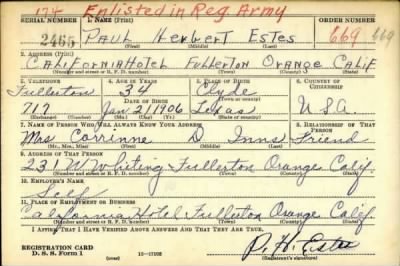 174 Enlisted in Reg. Army
SERIAL NUMBER 1. NAME (Print) ORDER NUMBER
2465 PAUL Herbert Estes 669 669
(First) (Middle) (Last)
2. ADDRESS (Print)
CALIFORNIA HOTEL FULLERTON ORANGE CALIF.
(Number and street or R. F. D. number) (Town) (County) (State)
3. TELEPHONE 4. AGE IN YEARS 5. PLACE OF BIRTH 6. COUNTRY OF CITIZENSHIP
Fullerton 34 Clyde
DATE OF BIRTH (Town or county)
717 Jan 2 1906 Texas U.S.A.
(Exchange) (Number) (Mo.) (Day) (Yr.) (State or country)
7. NAME OF PERSON WHO WILL ALWAYS KNOW YOUR ADDRESS 8. RELATIONSHIP OF THAT PERSON
Mrs Corrinne D Innes Friend
(Mr., Mrs., Miss) (First) (Middle) (Last)
9. ADDRESS OF THAT PERSON
231 W Whiting Fullerton Orange Calif.
(Number and street or R. F. D. number) (Town) (County) (State)
10. EMPLOYER'S NAME
Self
11. PLACE OF EMPLOYMENT OR BUSINESS
California Hotel Fullerton Orange Calif.
(Number and street or R. F. D. number) (Town) (County) (State)
I AFFIRM THAT I HAVE VERIFIED ABOVE ANSWERS AND THAT THEY ARE TRUE.
REGISTRATION CARD
D. S. S. Form 1 16-17105 P. H. Estes
(Registrant's signature)